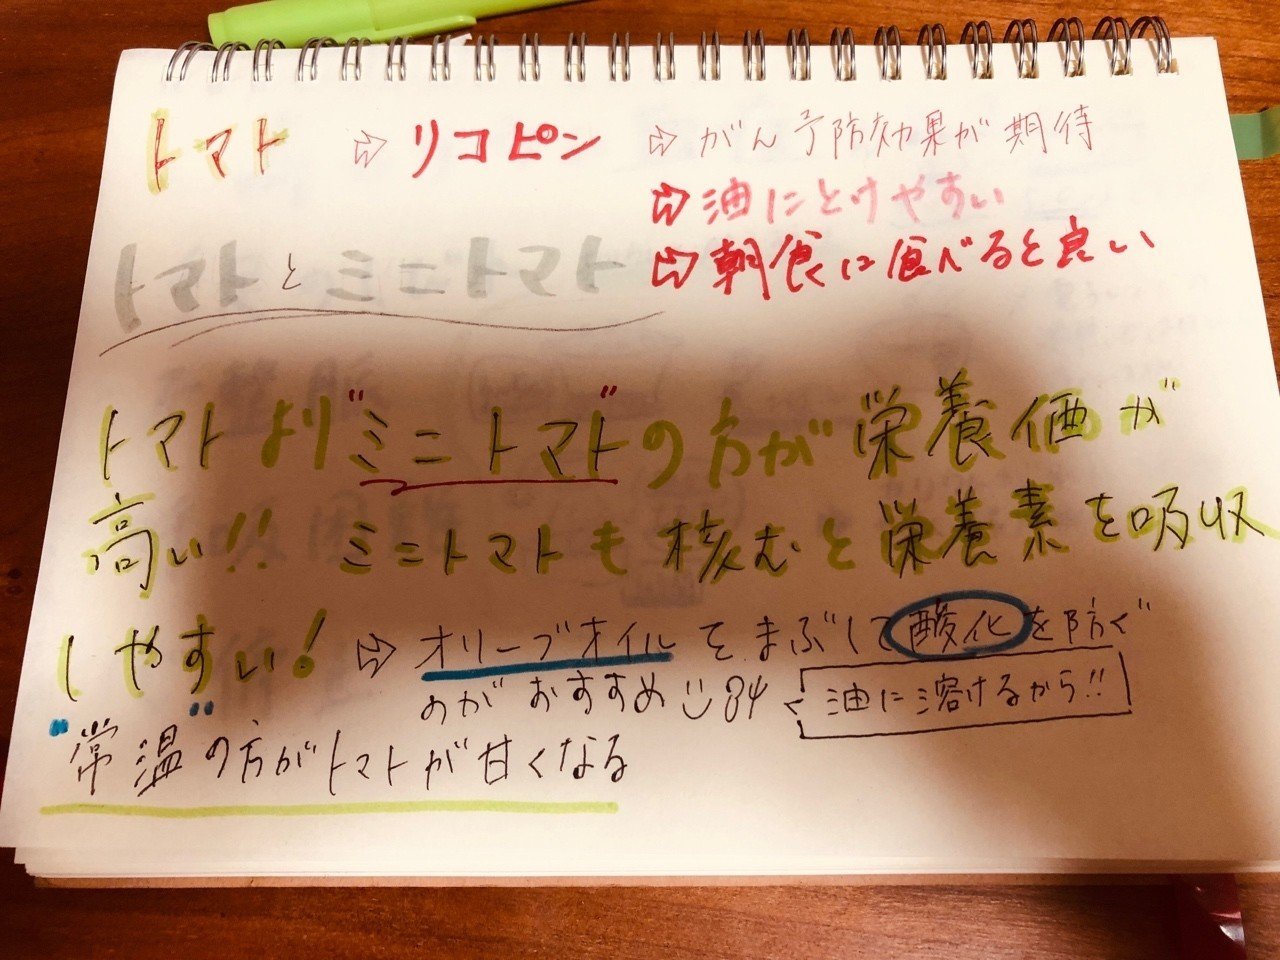 トマト ⇨ リコピン ⇨ がん予防効果が期待
⇨ 油にとけやすい
⇨ 朝食に食べると良い
トマトとミニトマト
トマトより"ミニトマト"の方が栄養価が
高い!! ミニトマトも核むと栄養素を吸収
しやすい! ⇨ オリーブオイルをまぶして酸化を防ぐ
のがおすすめ
油に溶けるから!!
"常温"の方がトマトが甘くなる